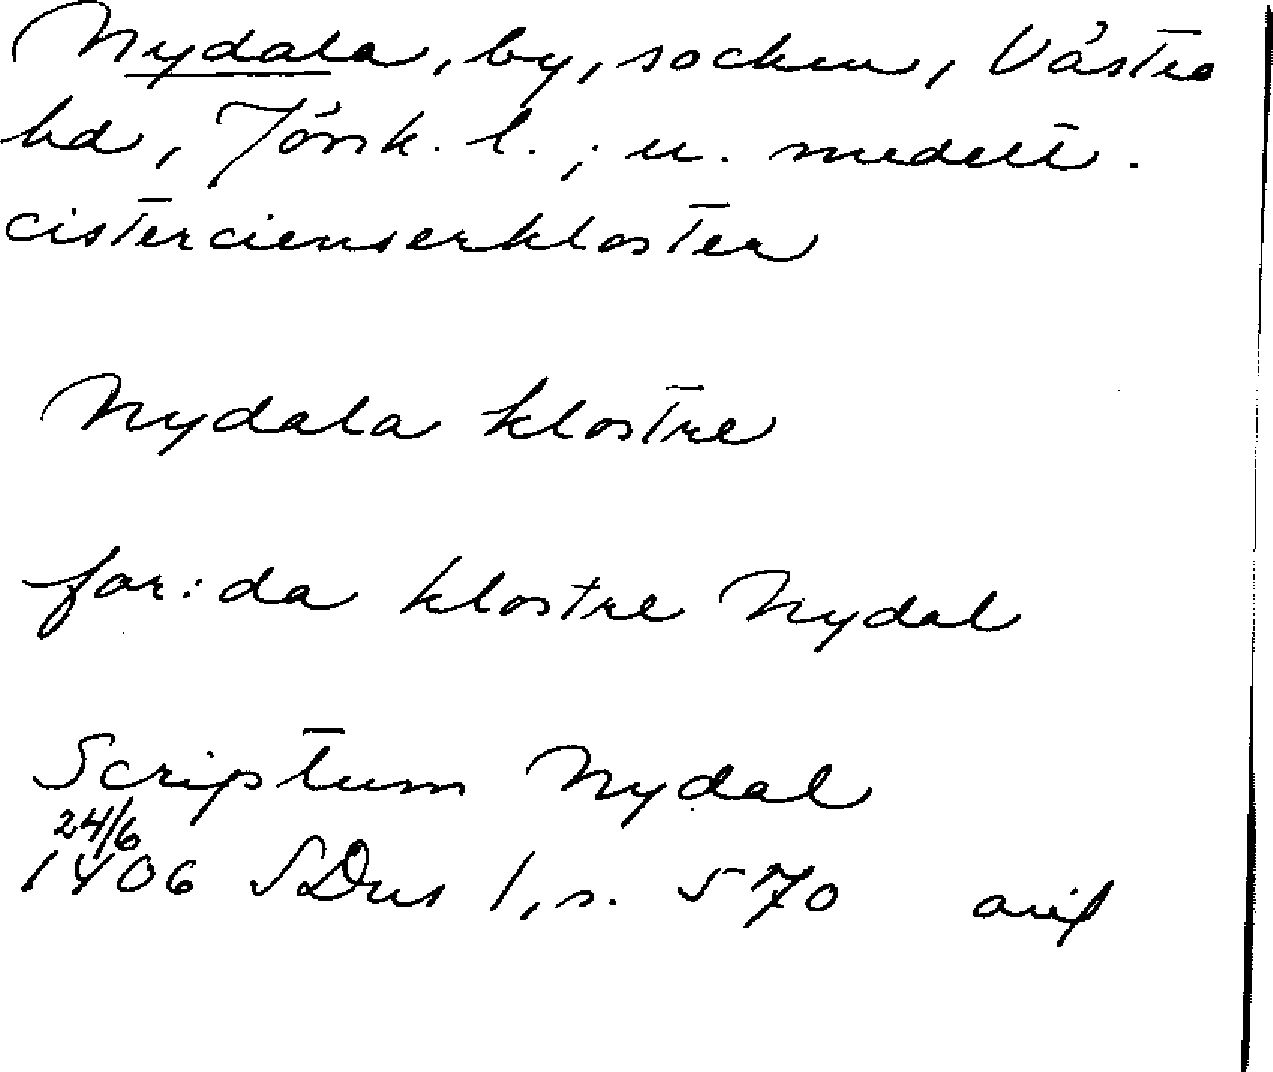 Nydala, by, socken, Västra
hd, Jönk. l.; u. medelt.
cistercienserkloster
Nydala klostre
for:da klostre Nydal
Scriptum Nydal
24/6
1406 SDns 1, s. 570 orig